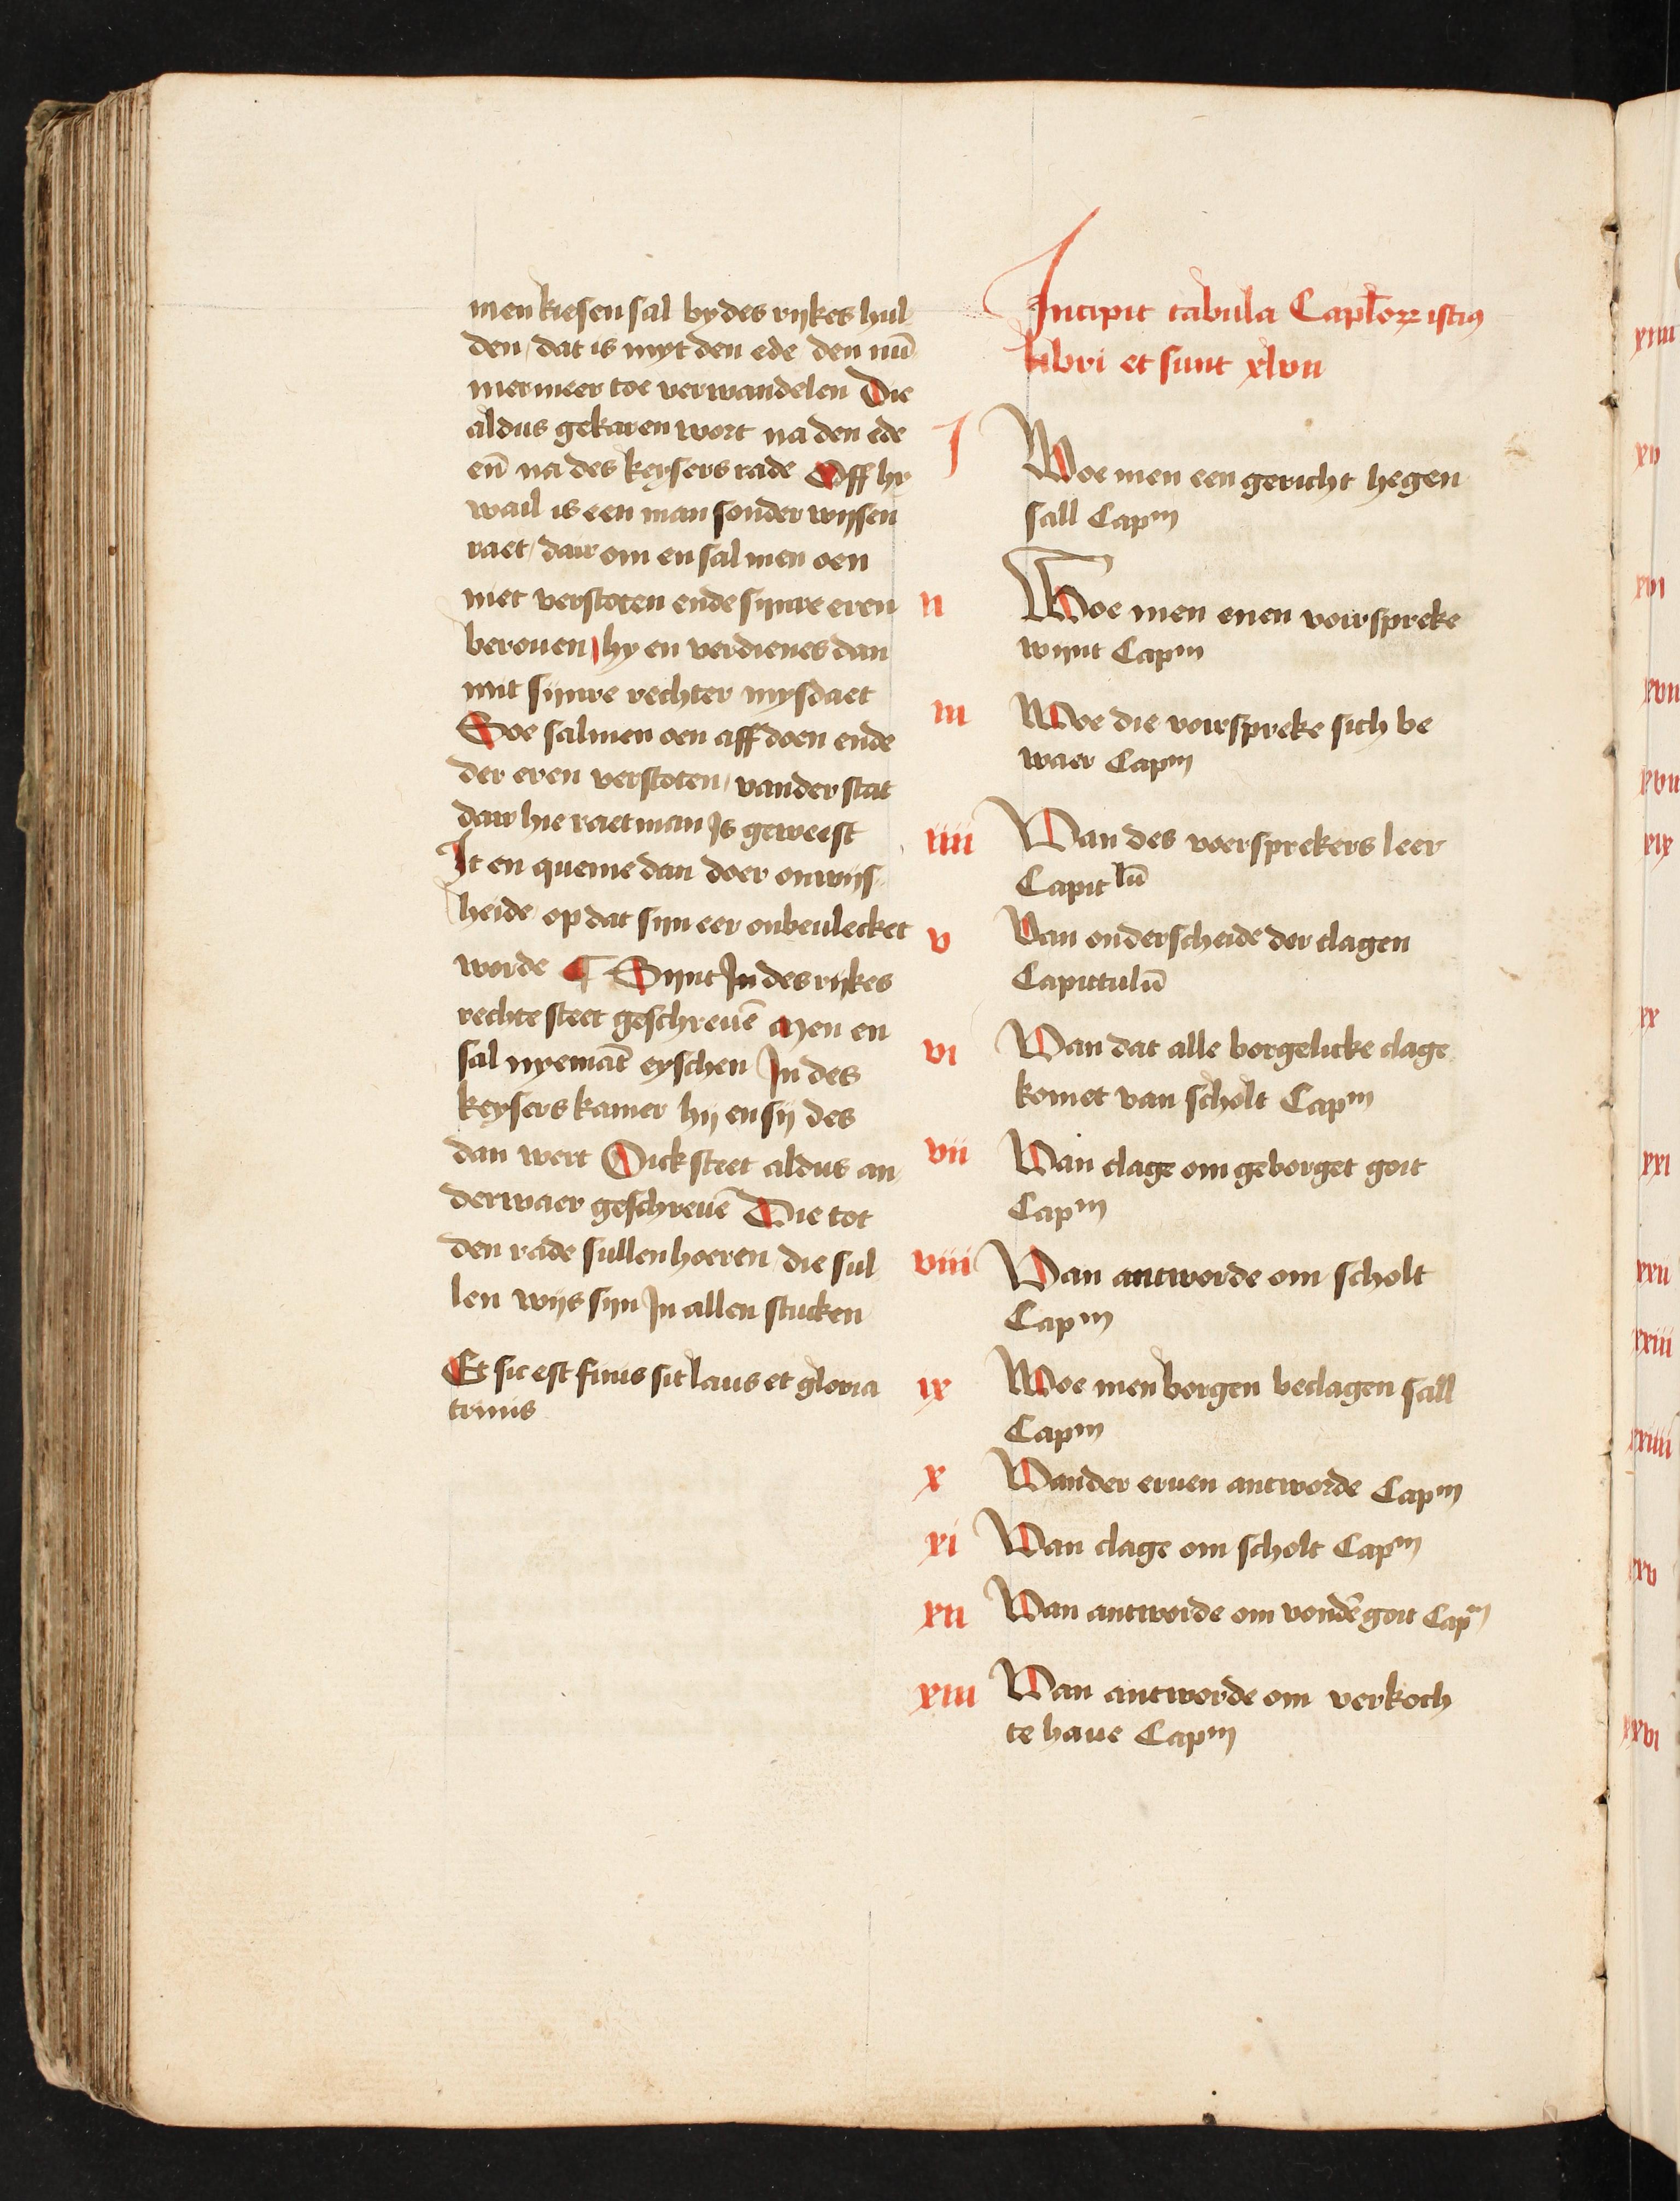 men kiesen sal by des rijkes hul
den / dat is myt den ede den nū
mermeer toe verwandelen Die
aldus gekaren wort na den ede
eñ na des keysers rade Off hy
wail is een man sonder wijsen
raet / dair om en sal men oen
niet verstoten ende sijnre eren
berouen / hy en verdienes dan
mit sijnre rechter mysdaet
Soe salmen oen aff doen ende
der eren verstoten / vander stat
dair hie raetman Is geweest
It en queme dan doer onwijs
heide op dat sijn eer onbeulecket
worde ¶ Sijnt In des rijkes
rechte steet geschreuē Men en
sal nyemāt eyschen In des
keysers kamer hij en sij des
dan wert Oick steet aldus an
derwaer geschreuē Die tot
den rade sullen hoeren / die sul
len wijs sijn In allen stucken
Et sic est finis sit laus et gloria
trinis
Incipit tabula Capl̄oꝝ istiꝰ
libri et sunt xlvii
I Woe men een gericht hegen
sall Capᵐ
ii Woe men enen voirspreke
wijnt Capᵐ
iii Woe die voirspreke sich be
waer Capᵐ
iiii Van des voersprekers leer
Capitlū
v Van onderscheide der clagen
Capittulū
vi Van dat alle borgelicke clage
komet van scholt Capᵐ
vii Van clage om geborget goit
Capᵐ
viii Van antworde om scholt
Capᵐ
ix Woe men borgen beclagen sall
Capᵐ
x Vander eruen antworde Capᵐ
xi Van clage om scholt Capᵐ
xii Van antworde om vondē goit Capᵐ
xiii Van antworde om verkoch
te haue Capᵐ
xiiii
xv
xvi
xvii
xviii
xix
xx
xxi
xxii
xxiii
xxiiii
xxv
xxvi